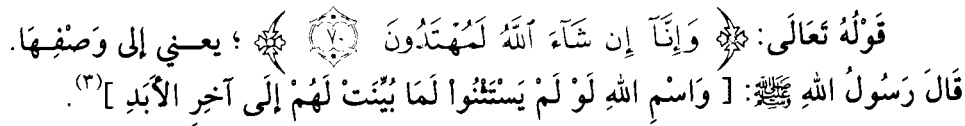 قَوْلُهُ تَعَالَى: ﴿ وَإِنَّآ إِن شَآءَ ٱللَّهُ لَمُهْتَدُونَ ٧٠ ﴾ ؛ يعـني إلى وَصْفِـهَا.
قَالَ رَسُولُ اللهِ ﷺ: [ وَاسْمِ اللهِ لَوْ لَمْ يَسْتَثْنُواْ لَمَا بُيِّنَتْ لَهُمْ إلَى آخِرِ الأَبَدِ ](٣).